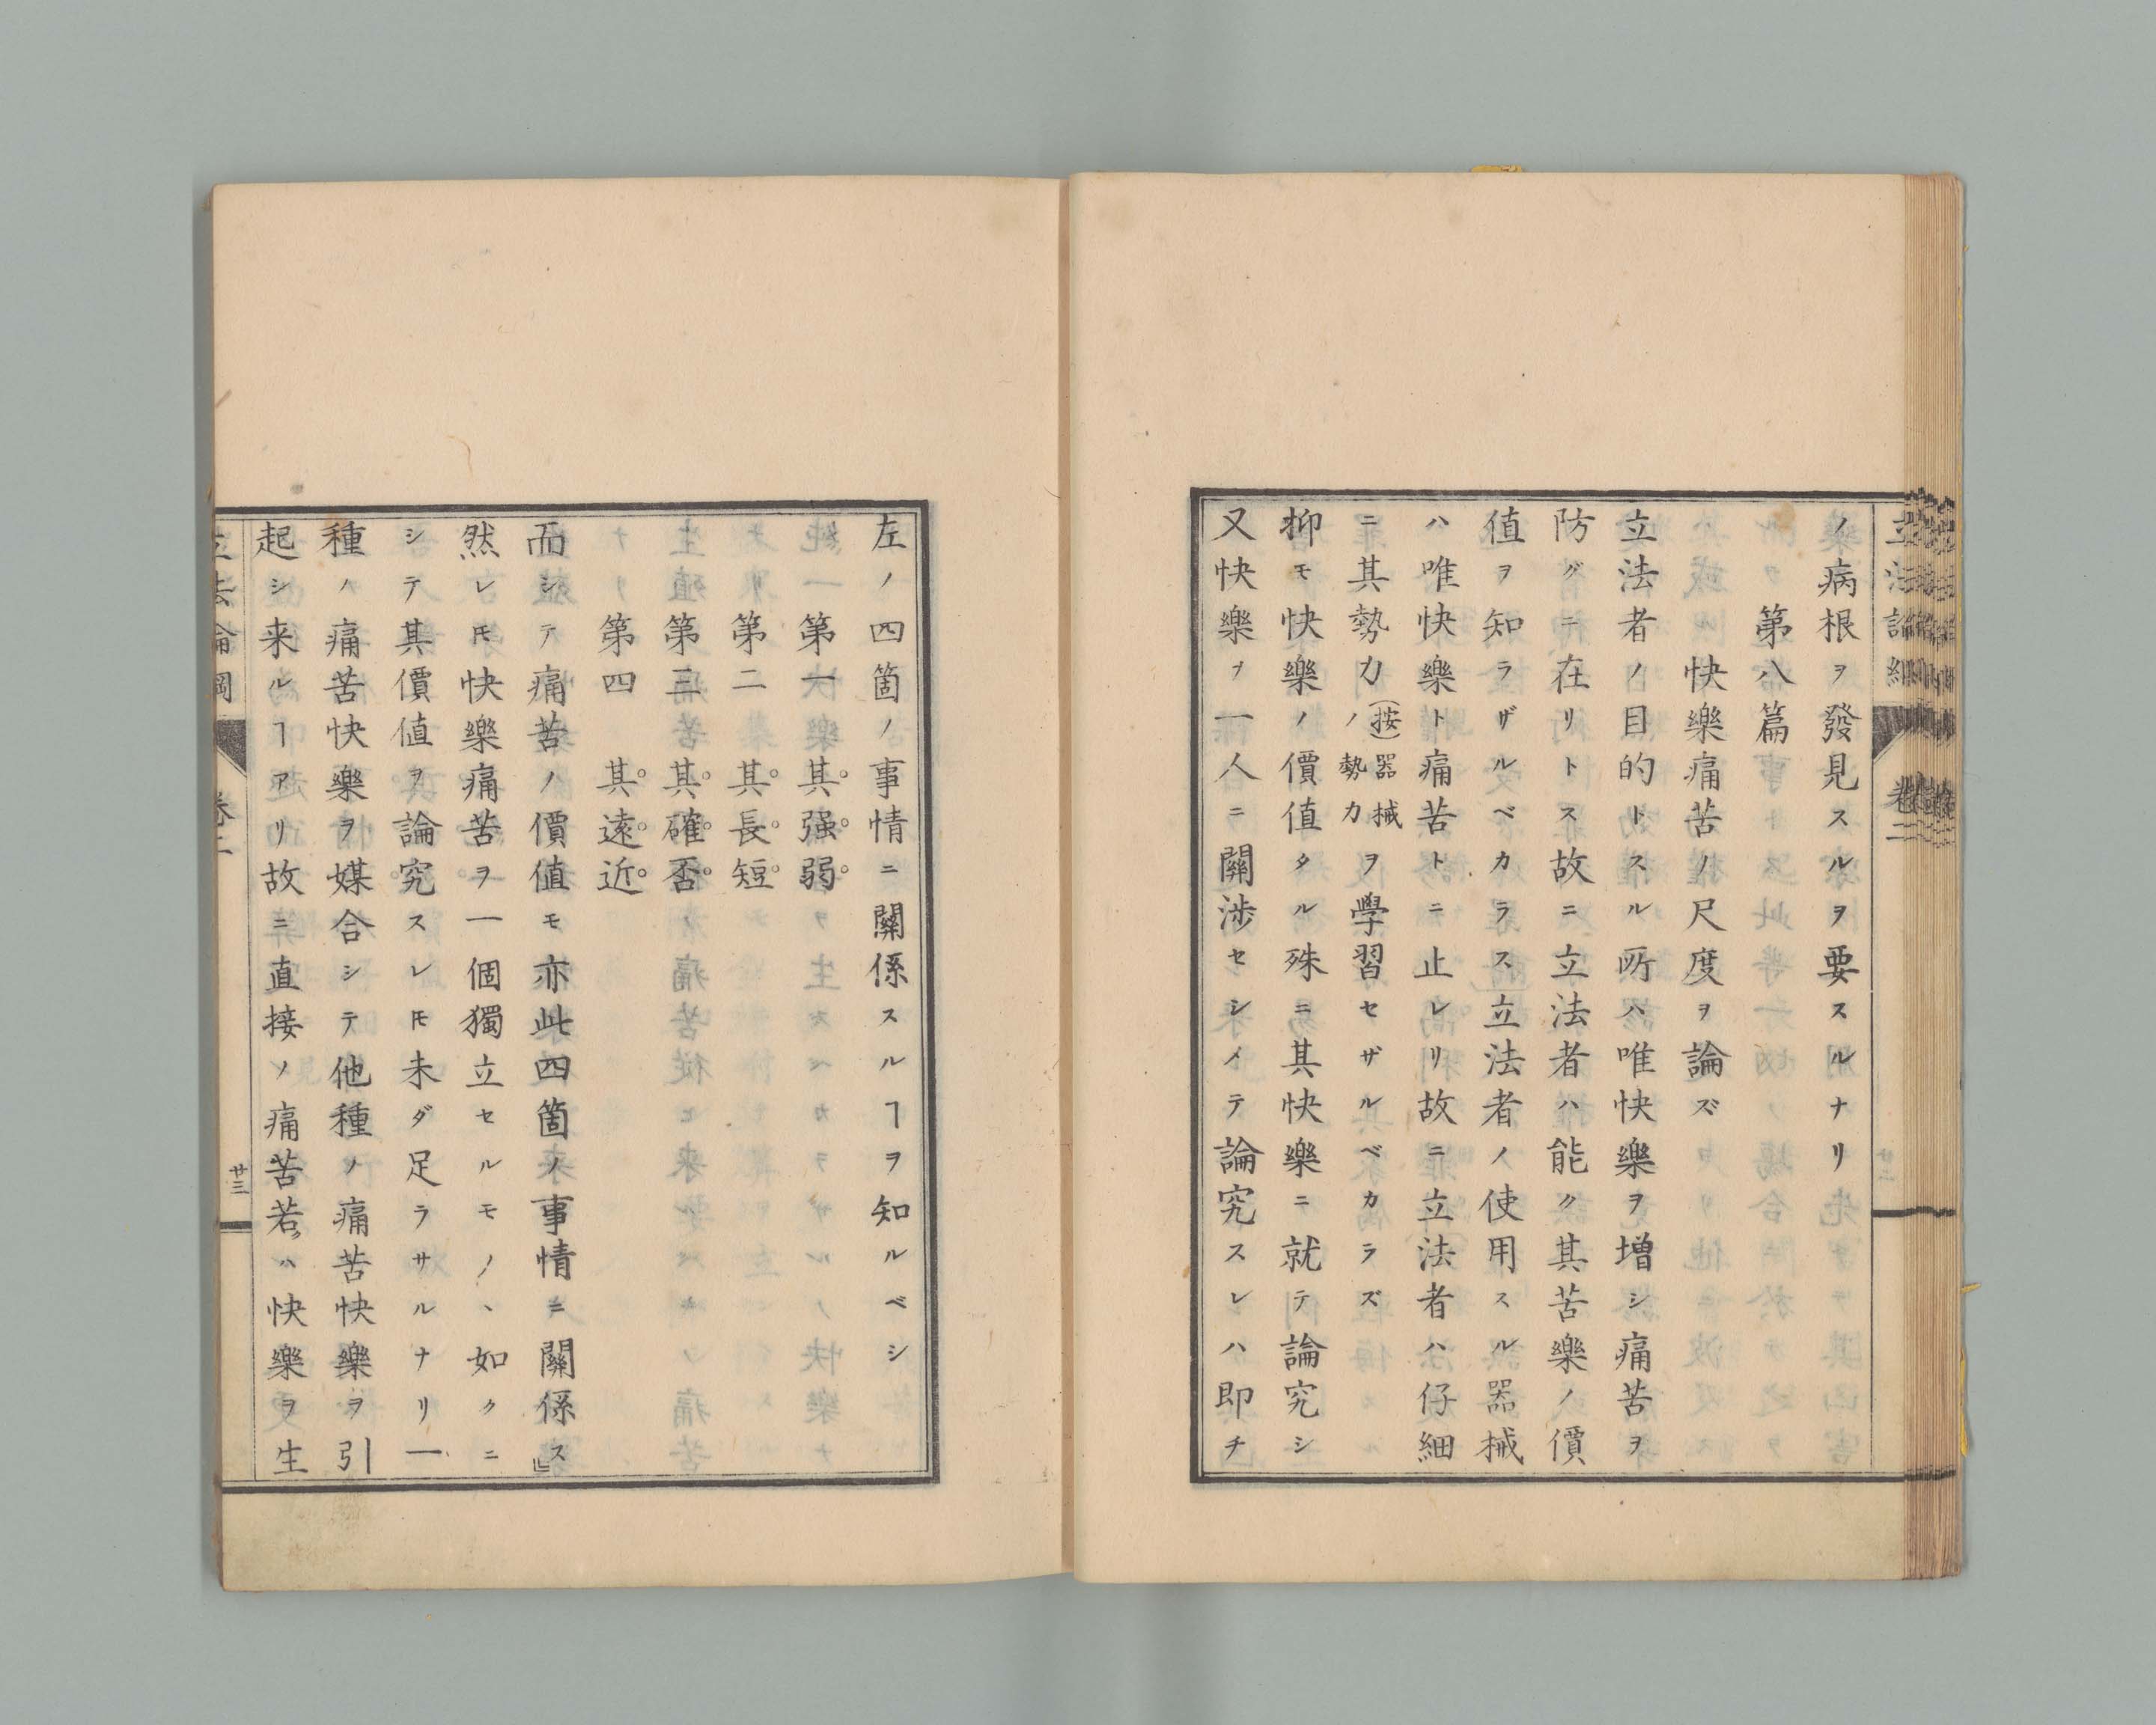 ノ病根ヲ發見スルヲ要スルナリ
第八篇
快樂痛苦ノ尺度ヲ論ズ
立法者ノ目的トスル所ハ唯快樂ヲ増シ痛苦ヲ
防グニ在リトス故ニ立法者ハ能ク其苦樂ノ價
値ヲ知ラザルベカラス立法者ノ使用スル器械
ハ唯快樂ト痛苦トニ止レリ故ニ立法者ハ仔細
ニ其勢力(按)器械ノ勢力ヲ學習セザルベカラズ
抑モ快樂ノ價値タル殊ニ其快樂ニ就テ論究シ
又快樂ヲ一人ニ關渉セシメテ論究スレハ即チ
左ノ四箇ノ事情ニ關係スルヿヲ知ルベシ
第一 其强弱
第二 其長短
第三 其確否
第四 其遠近
而シテ痛苦ノ價値モ亦此四箇ノ事情ニ關係ス』
然レ𪜈快樂痛苦ヲ一個獨立セルモノヽ如クニ
シテ其價値ヲ論究スレ𪜈未ダ足ラサルナリ一
種ノ痛苦快樂ヲ媒合シテ他種ノ痛苦快樂ヲ引
起シ来ルヿアリ故ニ直接ノ痛苦若クハ快樂ヲ生
卷二
廿三